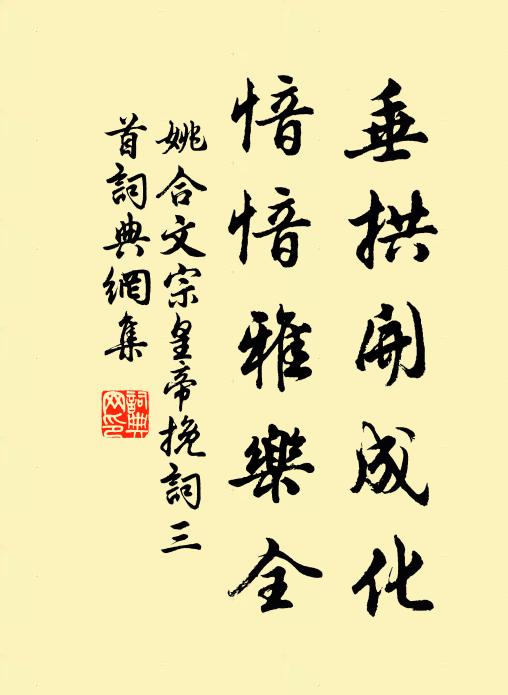 垂拱開成化
愔愔雅樂全
姚合文宗皇帝挽詞三
首詞典網集
詞典
网印